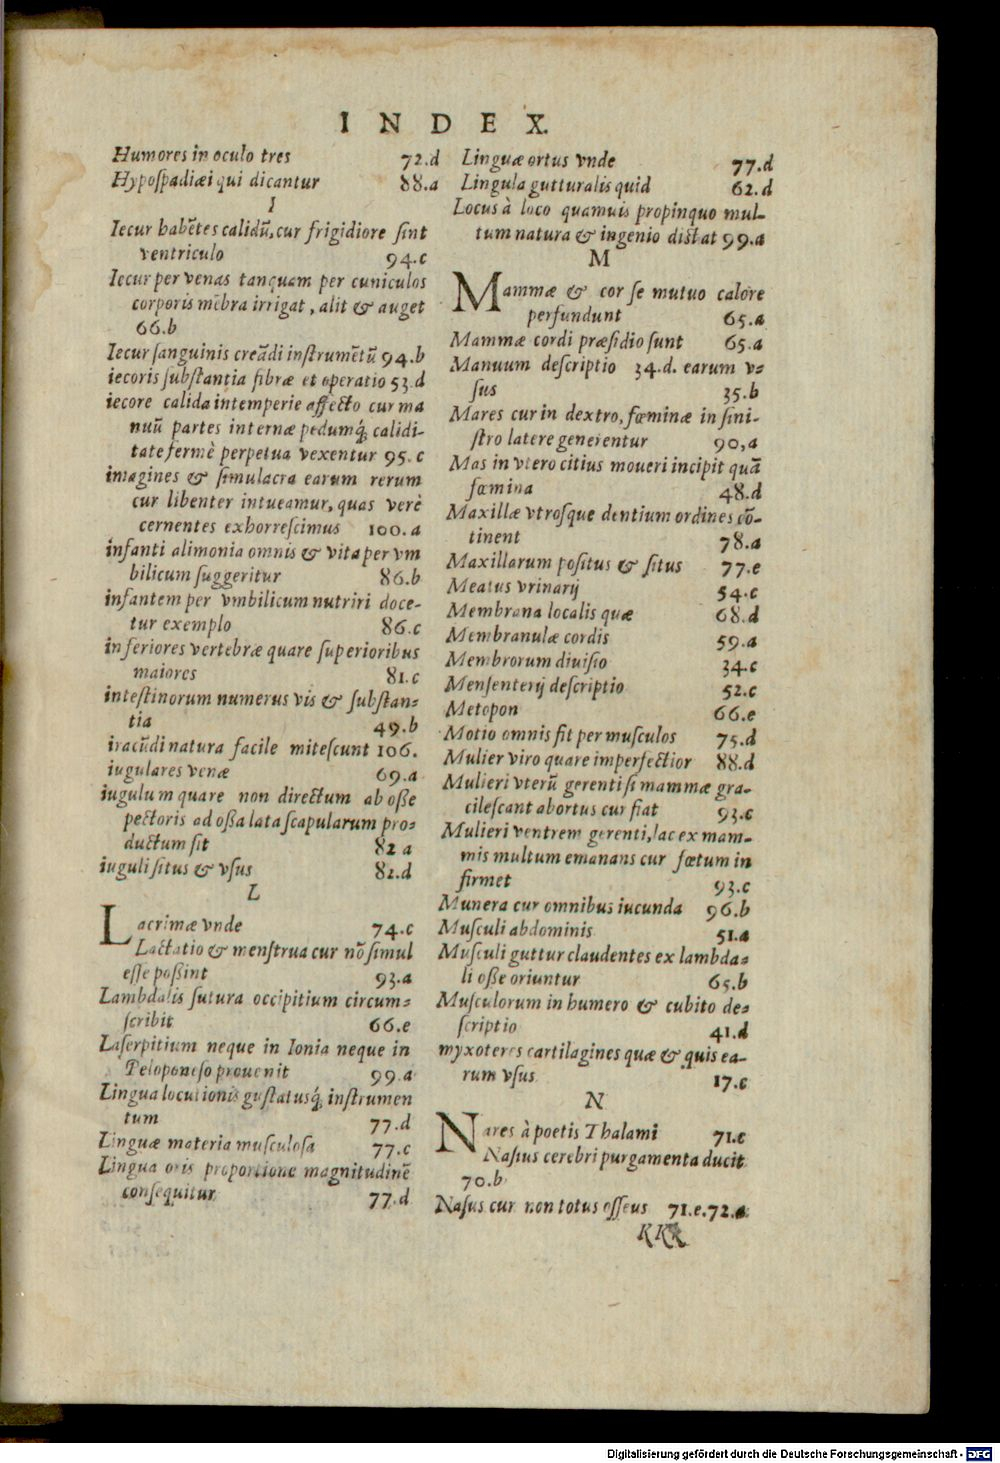 INDEX.
Humores in oculo tres 72.d
Hypospadiæi qui dicantur 88.a
I
Iecur habẽtes calidũ, cur frigidiore ſint
ventriculo 94.c
Iecur per venas tanquam per cuniculos
corporis mẽbra irrigat, alit & auget
66.b
Iecur ſanguinis creãdi inſtrumẽtũ 94.b
iecoris ſubſtantia fibræ et operatio 53.d
iecore calida intemperie affecto cur ma
nuũ partes internæ pedumq́; calidi-
tate fermè perpetua vexentur 95.c
imagines & ſimulacra earum rerum
cur libenter intueamur, quas verè
cernentes exhorreſcimus 100.a
infanti alimonia omnis & vita per vm
bilicum ſuggeritur 86.b
infantem per vmbilicum nutriri doce-
tur exemplo 86.c
inferiores vertebræ quare ſuperioribus
maiores 81.c
inteſtinorum numerus vis & ſubſtan-
tia 49.b
iracũdi natura facile miteſcunt 106.
iugulares venæ 69.a
iugulum quare non directum ab oſſe
pectoris ad oſſa lata ſcapularum pro-
ductum ſit 82 a
iuguli ſitus & vſus 81.d
L
Lacrimæ vnde 74.c
Lactatio & menſtrua cur nõ ſimul
eſſe poſſint 93.a
Lambdalis ſutura occipitium circum-
ſcribit 66.e
Laſerpitium neque in Ionia neque in
Peloponeſo prouenit 99.a
Lingua locutionis guſtatusq́; inſtrumen
tum 77.d
Linguæ materia muſculoſa 77.c
Lingua oris proportione magnitudinẽ
conſequitur 77.d
Linguæ ortus vnde 77.d
Lingula gutturalis quid 62.d
Locus à loco quamuis propinquo mul-
tum natura & ingenio diſtat 99.a
M
Mammæ & cor ſe mutuo calore
perfundunt 65.a
Mammæ cordi præſidio ſunt 65.a
Manuum deſcriptio 34.d. earum v-
ſus 35.b
Mares cur in dextro, fœminæ in ſini-
ſtro latere generentur 90,a
Mas in vtero citius moueri incipit quã
fœmina 48.d
Maxillæ vtroſque dentium ordines cõ-
tinent 78.a
Maxillarum poſitus & ſitus 77.e
Meatus vrinarij 54.c
Membrana localis quæ 68.d
Membranulæ cordis 59.a
Membrorum diuiſio 34.c
Menſenterij deſcriptio 52.c
Metopon 66.e
Motio omnis fit per muſculos 75.d
Mulier viro quare imperfectior 88.d
Mulieri vterũ gerenti ſi mammæ gra-
cileſcant abortus cur fiat 93.c
Mulieri ventrem gerenti, lac ex mam-
mis multum emanans cur fœtum in
firmet 93.c
Munera cur omnibus iucunda 96.b
Muſculi abdominis 51.a
Muſculi guttur claudentes ex lambda-
li oſſe oriuntur 65.b
Muſculorum in humero & cubito de-
ſcriptio 41.d
myxoteres cartilagines quæ & quis ea-
rum vſus 17.c
N
Nares à poetis Thalami 71.c
Naſus cerebri purgamenta ducit
70.b
Naſus cur non totus oſſeus 71.e.72.a
KKK
Digitalisierung gefördert durch die Deutsche Forschungsgemeinschaft - DFG